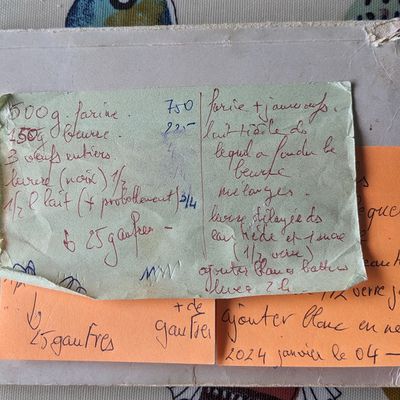 500g. farine. 750
150g beurre. 225
3 œufs entiers 4
levure (noix) 1/2
1/2 l lait (+ probablement) 3/4
↳ 25 gaufres -
farine + jaunes œufs.
lait tiède ds
lequel a fondu le
beurre
mélanger.
levure délayée ds
eau tiède et 1 sucre
(1/2 verre)
ajouter blancs battus
lever 2 h
25 gaufres
+ de
gaufres
1/2 verre
ajouter blanc en ne
2024 janvier le 04 -